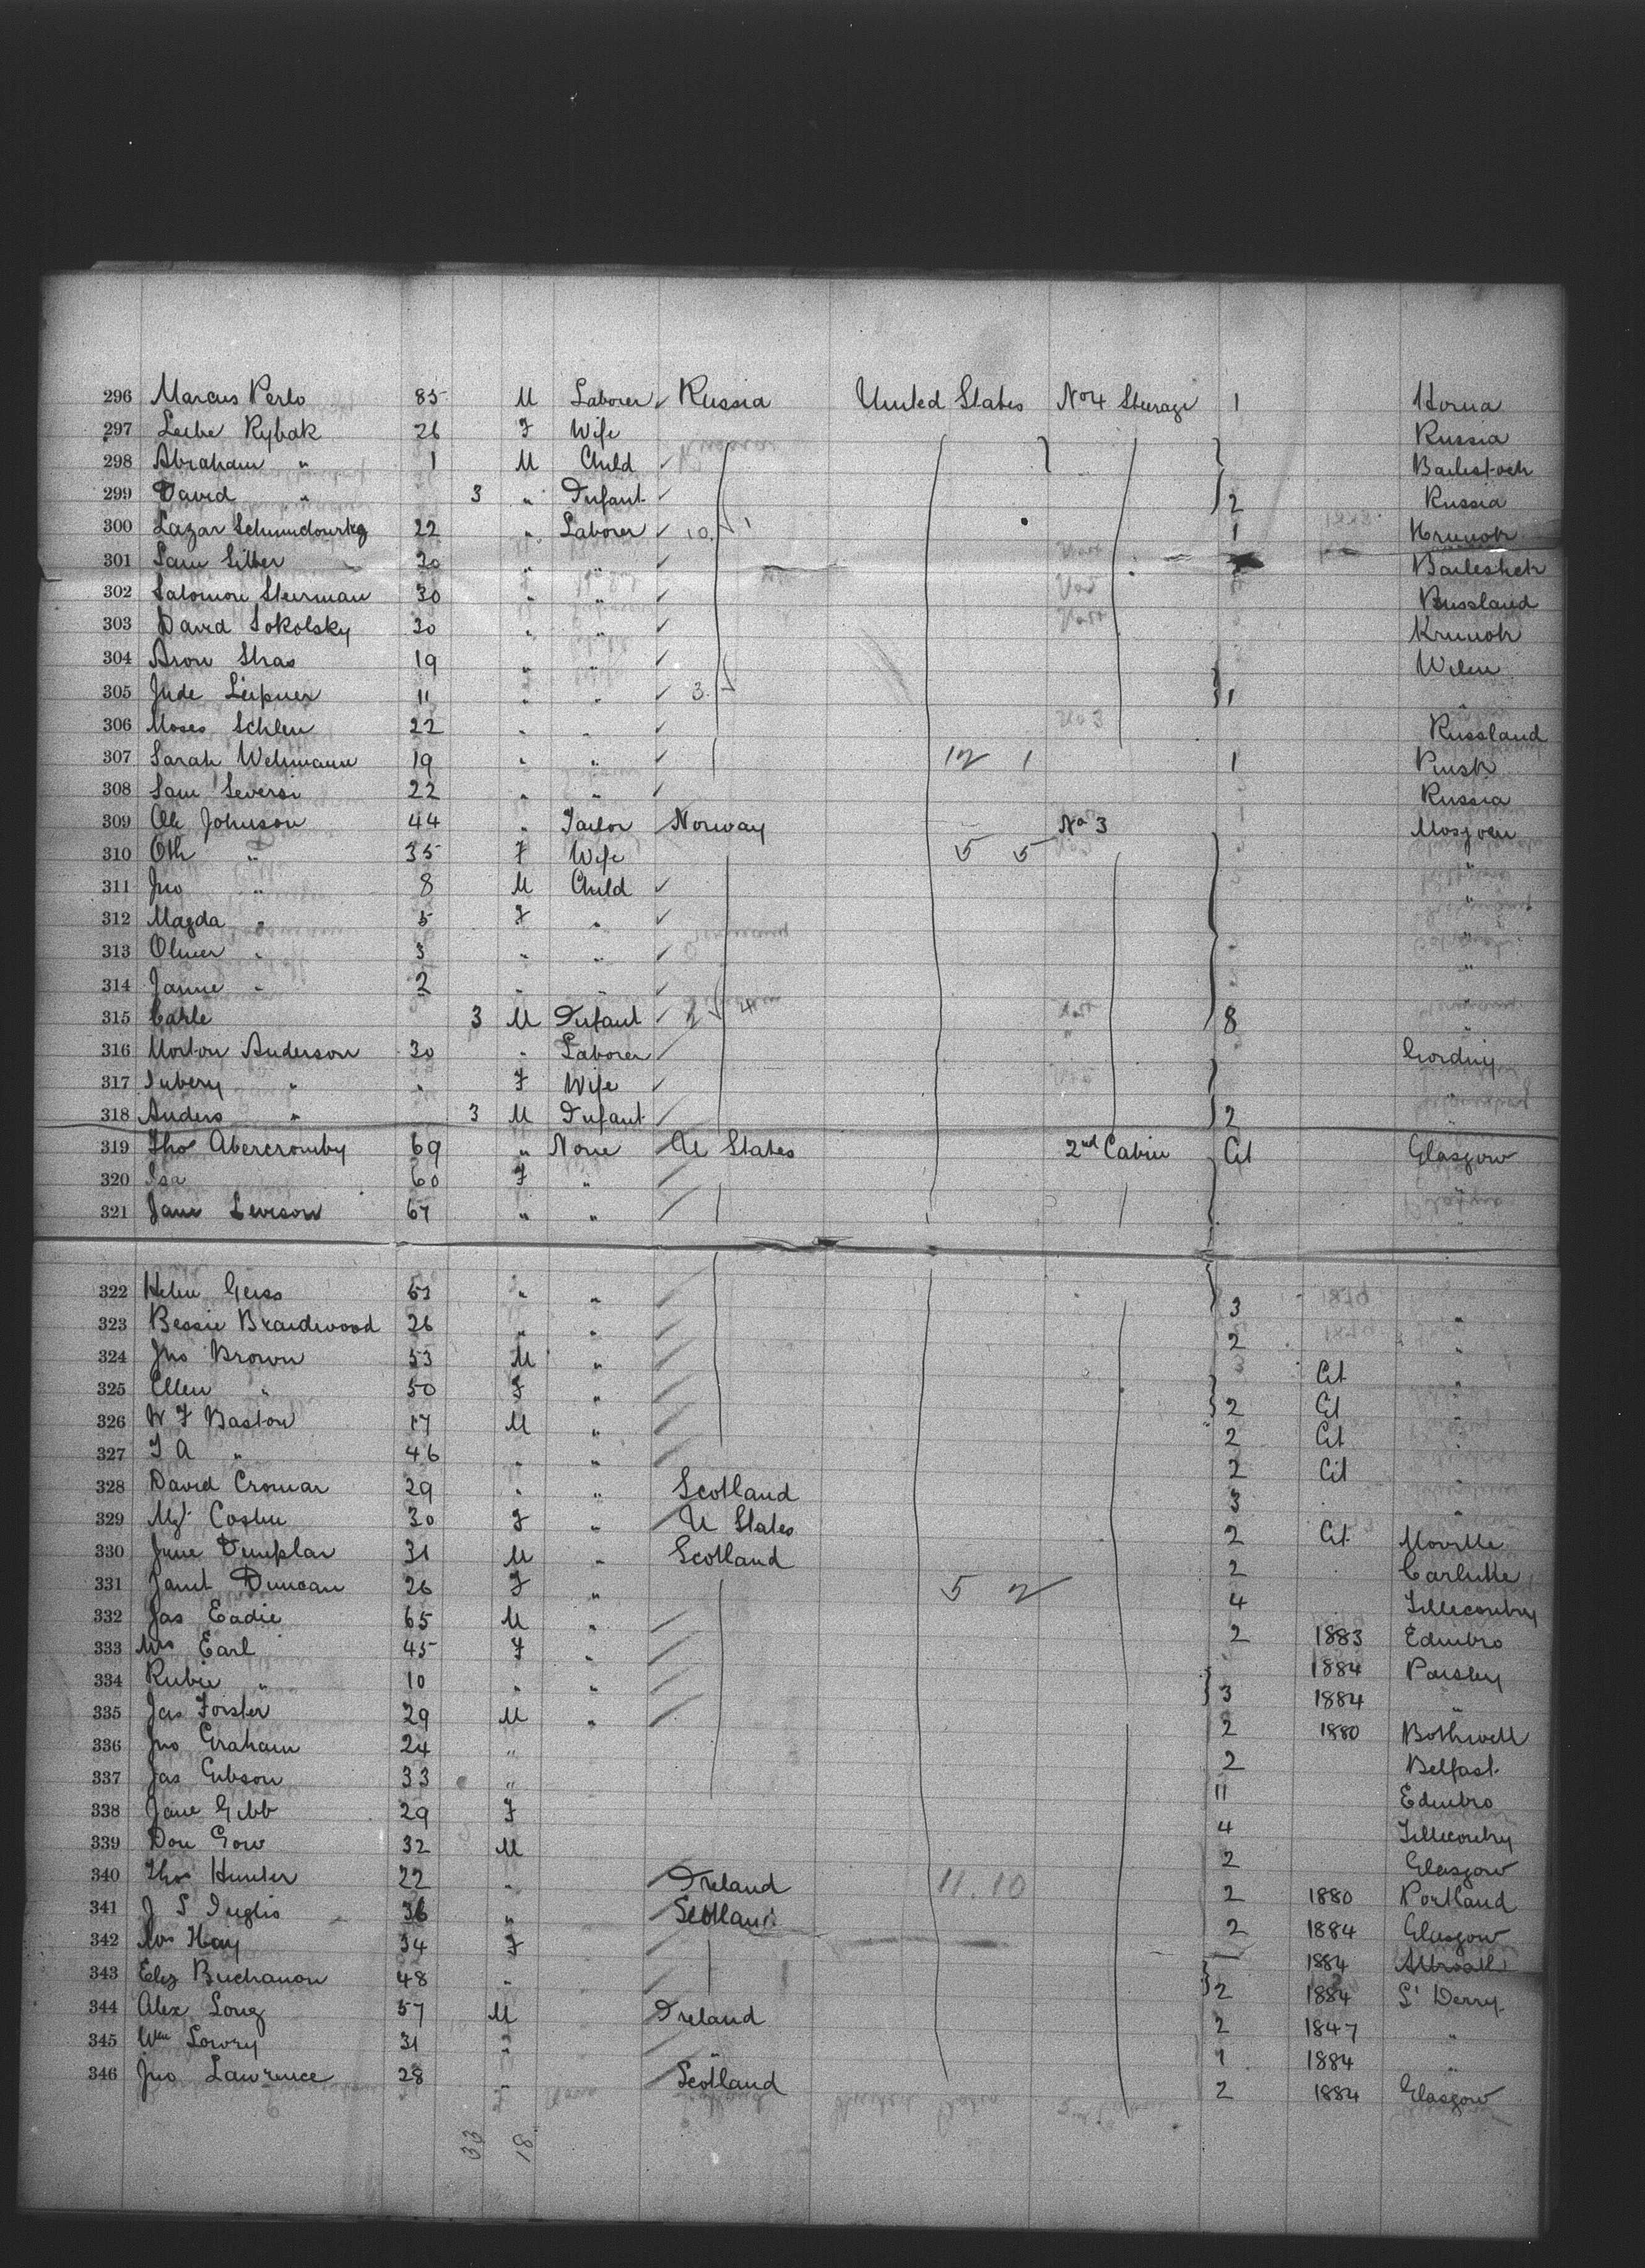 296 Marcus Perlo 85 M Laborer Russia United States No 4 Steerage 1
297 Leibe Rybak 26 F Wife Russia
298 Abraham " 1 M Child
299 David " 3 " Infant 2 Russia
300 Lazar 22 " Laborer 10 1 1 Krunok
301 Sam Silber 20 " "
302 Salomon Sturman 30 " " Russland
303 David Sokolsky 30 " " Krunok
304 Aron Stras 19 " " Wilen
305 Jude Leipner 11 " " 3 1 "
306 Moses Schlen 22 " " Russland
307 Sarah Welimann 19 " " 12 1 1 Pinsk
308 Sam Seversi 22 " " Russia
309 Ole Johnson 44 " Tailor Norway No 3 Mosjoen
310 Oth " 35 F Wife 5 5 "
311 Jno " 8 M Child "
312 Magda " 5 F " "
313 Oliver " 3 " " "
314 Janne " 2 " " "
315 Carle 3 M Infant 2 4 8 "
316 Morton Anderson 30 " Laborer
317 " " F Wife "
318 Anders " 3 M Infant 2
319 Thos Abercromby 69 " None U States 2nd Cabin Cit Glasgow
320 Isa 60 F " "
321 Jane Levison 67 " " "
322 Helen Geiss 51 " " 3 "
323 Bessie Braidwood 26 " " 2 "
324 Jno Brown 53 M " Cit "
325 Ellen " 50 F " 2 Cit "
326 W F Baston 17 M " 2 Cit "
327 J A " 46 " " 2 Cit "
328 David Cromar 29 " " Scotland 3 "
329 Mgt Costin 30 F " U States 2 Cit Moville
330 31 M " Scotland 2 Carluke
331 Janet Duncan 26 F " 5 2 4 Tillicoutry
332 Jas Eadie 65 M " 2 1883 Edinbro
333 Mrs Earl 45 F " 1884 Paisley
334 Rubie " 10 " " 3 1884 "
335 Jas Forster 29 M " 2 1880 Bothwell
336 Jno Graham 24 " 2 Belfast
337 Jas Gibson 33 " 11 Edinbro
338 Jane Gibb 29 F 4 Tillicoutry
339 Don Gow 32 M 2 Glasgow
340 Thos Hunter 22 " Ireland 11.10 2 1880 Portland
341 J S Inglis 36 " Scotland 2 1884 Glasgow
342 Mrs Hay 34 F 1884
343 Eliz Buchanon 48 " 2 1884 L' Derry
344 Alex Long 57 M Ireland 2 1847 "
345 Wm Lowry 31 " " 1 1884 "
346 Jno Lawrence 28 " Scotland 2 1884 Glasgow
33 18